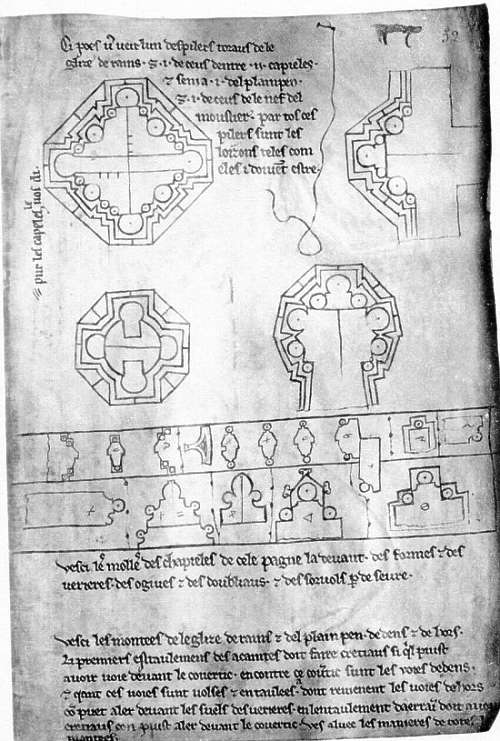 Ci poes ū veir lun des pilers toraus de le
glize de rains · ⁊ · i · de ceus dentre · ii · capieles ·
⁊ sen i a · i · del plain pen ·
⁊ · i · de ceus de le nef del
moustier · par tos ces
pilers sunt les
loizons teles com
eles i doivent estre ·
32
les capeles
vesci les molles des chapieles de cele pagne la devant · des formes ⁊ des
verieres · des ogives ⁊ des doubliaus · ⁊ des sorvols p de seure ·
vesci les montees de le glize de rains ⁊ del plain pen · dedens ⁊ de hors ·
Li premiers estaulemens des acaintes doit faire cretiaus si qil puist
avoir voie devant le covertic · encontre ce covertic sunt les voies dedens ·
⁊ qant ces voies sunt volses ⁊ entaulees · dont revienent les voies dehors
com puet aler devant les suels des verieres · en lentaulement daerrai doit avoir
cretiaus con puist aler devant le covertic · ves aluec les manieres de totes
montees ·